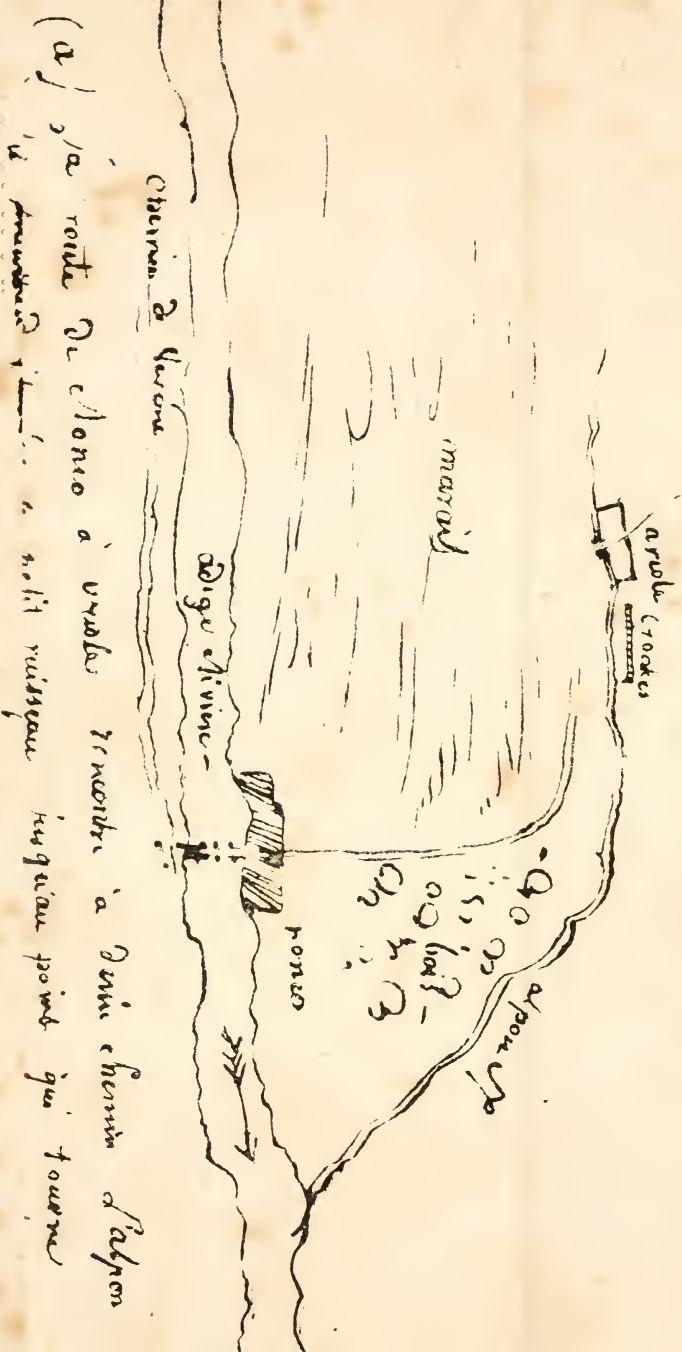 arcole
Croates
marais
alpon
bois
ronco
adige rivière
chemin de Verone
(a) la route de ronco à arcole rencontre à demi chemin l'alpon
petit ruisseau jusqu'au point qui tourne